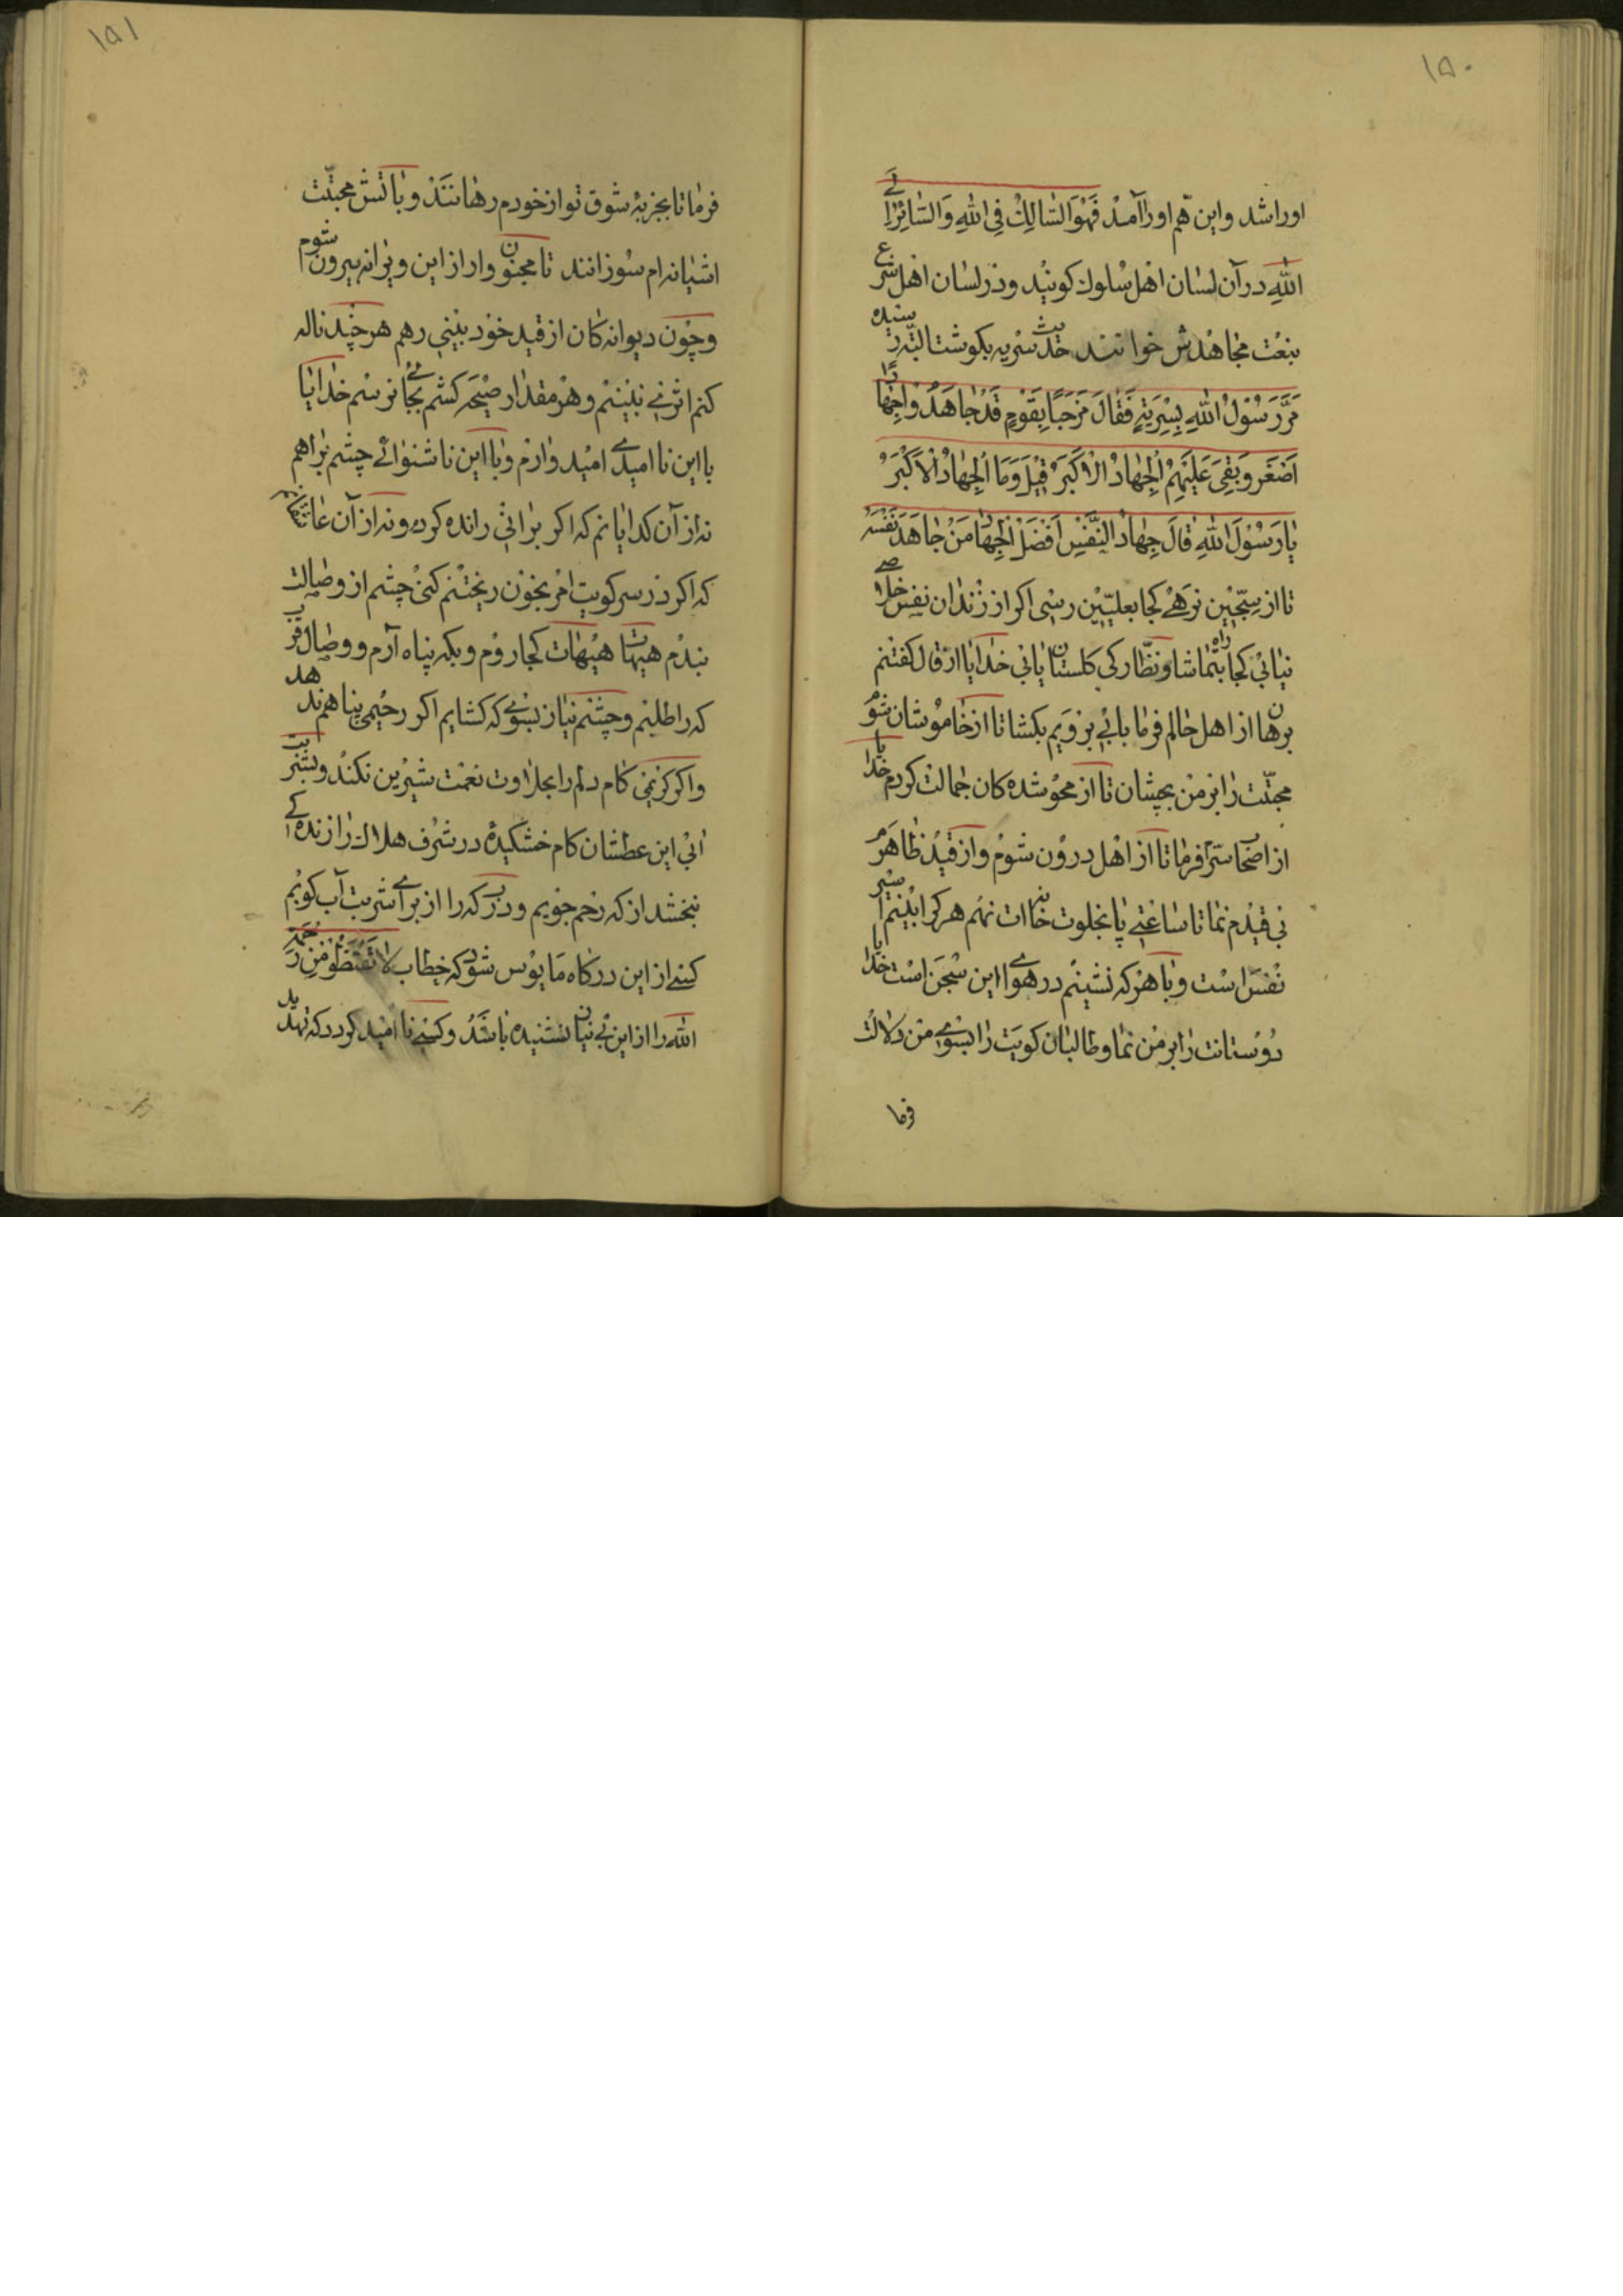 ۱۵۰
او را شد و این هم او را آمد فَهُوَ السّالِكُ فِی اللهِ وَالسّائِرُ اِلَی
اللهِ در آن لسان اهل سلوك كویند و در لسان اهل شرع
بنعت مجاهدش خوانند حدیث سریه بكوشت البته رسیده
مَرَّ رَسُوْلُ اللهِ بِسَرِیَّةٍ فَقالَ مَرْحَبًا بِقَوْمٍ قَدْ جاهَدُوا جِهادًا
اَصْغَرَ وَبَقِیَ عَلَیْهِمُ الْجِهادُ الْاَكْبَرُ قِیْلَ وَمَا الْجِهادُ الْاَكْبَرُ
یا رَسُوْلَ اللهِ قالَ جِهادُ النَّفْسِ اَفْضَلُ الْجِهادِ مَنْ جاهَدَ نَفْسَهُ
تا از سِجّیْن نرهی كجا بعلیّیْن رسی اكر از زندان نفس خلاصی
نیابی كجا راه بتماشا و نظّاركی كلستان یابی خدایا از قال كفتنم
برهان از اهل حالم فرما بابی برویم بكشا تا از خاموشان شوم
محبّت را بر من بچشان تا از محو شده كان جمالت كردم خدایا
از اصحاب سرّم فرما تا از اهل درون شوم و از قید ظاهر
بی قیدم نما تا ساعتی پا بخلوت خانه ات نهم هر كرا بینم اسیر
نفس است و با هر كه نشینم در هوای این سجن است خدایا
دوستانت را بر من نما و طالبان كویت را بسوی من دلالت
فرما
۱۵۱
فرما تا بجزبهٔ شوق تو از خودم رهانند و باتش محبّت
اشیانه ام سوزانند تا مجنون وار از این ویرانه بیرون شوم
و چون دیوانه كان از قید خود بینی رهم هر چند ناله
كنم اثر نمی بینم و هر مقدار صیحه كشم بجائی نرسم خدایا
با این نا امیدی امیدوارم و با این ناشنوائی چشم براهم
نه از آن كدایانم كه اكر برانی رانده كردم و نه از آن
كه اكر در سر كویت امر بخون ریختنم كنی چشم از وصالت
بندم هیهات هیهات كجا روم و بكه پناه آرم و وصال قرب
كه را طلبم و چشم نیاز بسوی كه كشایم اكر رحیمی پناهم ندهد
و اكر كریمی كام دلم را بحلاوت نعمت شیرین نكند و بشربت
ابی این عطشان كام خشكیده در شرف هلاك را زنده كی
نبخشد از كه رحم جویم و درب كه را از برای شربت آب كوبم
كسی از این دركاه مایوس شود كه خطاب لا تَقْنَطُوا مِن رَحْمَةِ
الله را از این بی نیاز نشنیده باشد و كسی نا امید كردد كه تهدید